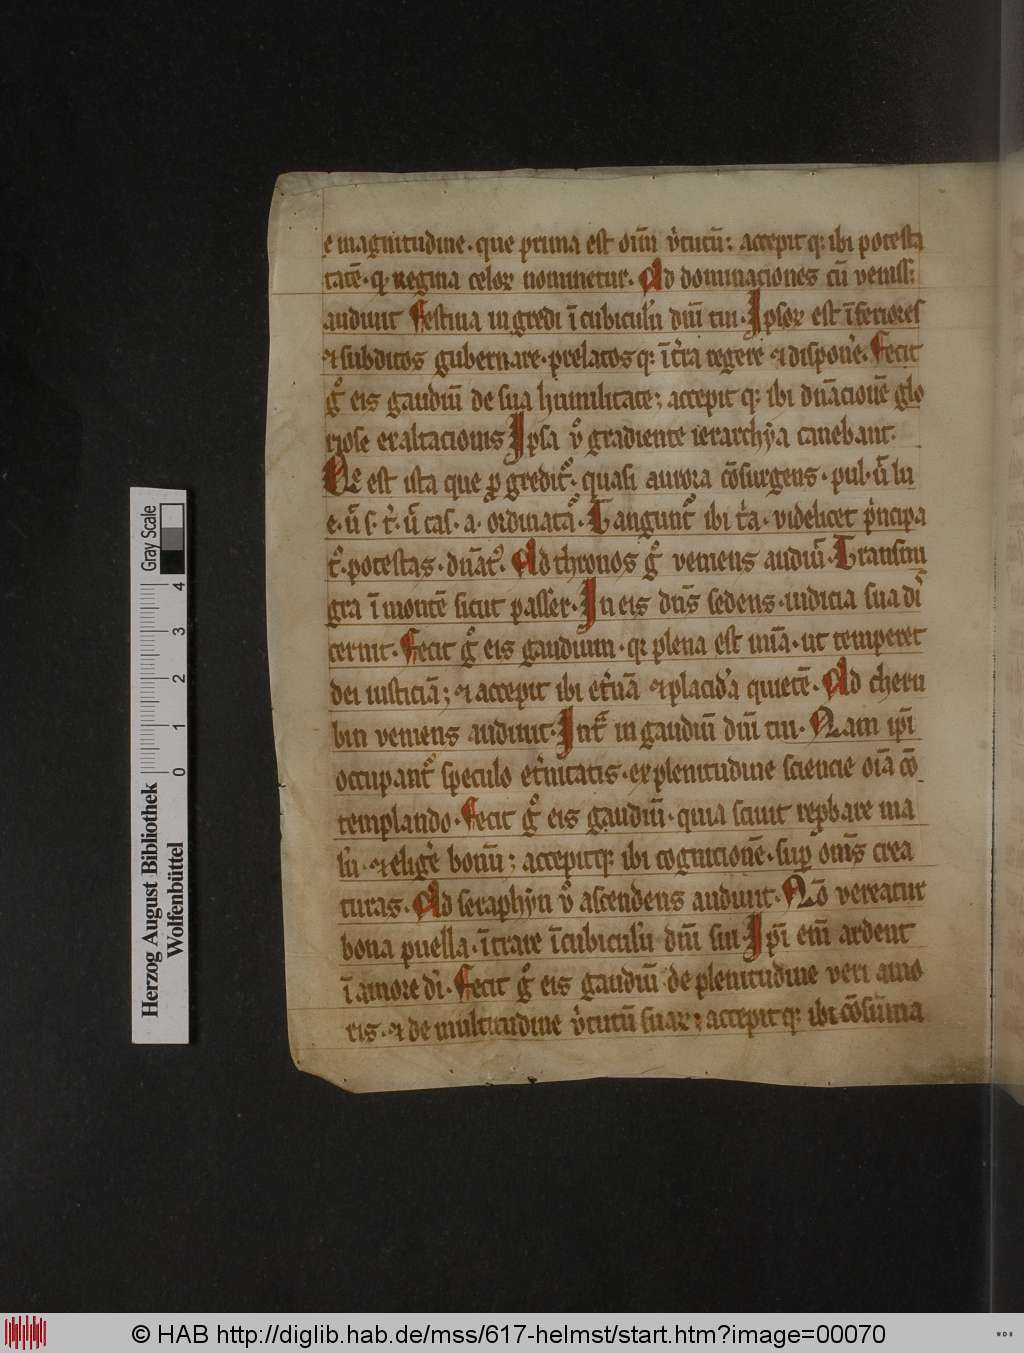 e magnitudine · que prima est oīm v̓tutū; accepit q; ibi potesta
tatē · qͥ regina celoꝝ nominetur · Ad dominaciones cū veniss;
audiuit festina in gredi ī cubicul'ū dnī tui · Ipsoꝝ est īferiores
⁊ subditos gubernare · prelatos q; īt̓ra regere ⁊ dispon̄e · Fecit
gͦ eis gaudiū de sua humilitate; accepit q; ibi dnācionē glo
riose exaltacionis Ipsa v̓o gradiente ierarchya canebant ·
Que est ista que ꝓ gredit᷑ · quasi aurora cōsurgens · pul · ū lu
e · ū s · t̓ · ū cas · a · ordinata᷑ · Tangunt᷑ ibi t̓a · videlicet p̓ncipa
t᷑ · potestas · dn̄at᷑ · Ad thronos gͦ veniens audiuͥ · Transmi
gra ī montē sicut passer · In eis dn̄s sedens · iudicia sua dī
cernit · Fecit gͦ eis gaudium · q; plena est mīa · ut temperet
dei iusticiā; ⁊ accepit ibi et̓nā ⁊ placidā quietē · Ad cheru
bin veniens audiuit · Int᷑ in gaudiū dnī tui · Nam ip̄i
occupant᷑ speculo et̓nitatis · ex plenitudine sciencie oīa cō
templando · Fecit gͦ eis gaudiū · quia sciuit rep̱bare ma
lū · ⁊ elig̓e bonū; accepitq; ibi cognicionē · suꝑ om̄s crea
turas · Ad seraphyn v̓o ascendens audiuit · Nō vereatur
bona puella · ītrare ī cubicul'ū dnī sui · Ip̄i enī ardent
ī amore dī · Fecit gͦ eis gaudiū de plenitudine veri amo
ris · ⁊ de multitudine v̓tutū suaꝝ; accepit q; ibi cōsūma
Herzog August Bibliothek
Wolfenbüttel
Gray Scale
0 1 2 3 4
© HAB http://diglib.hab.de/mss/617-helmst/start.htm?image=00070